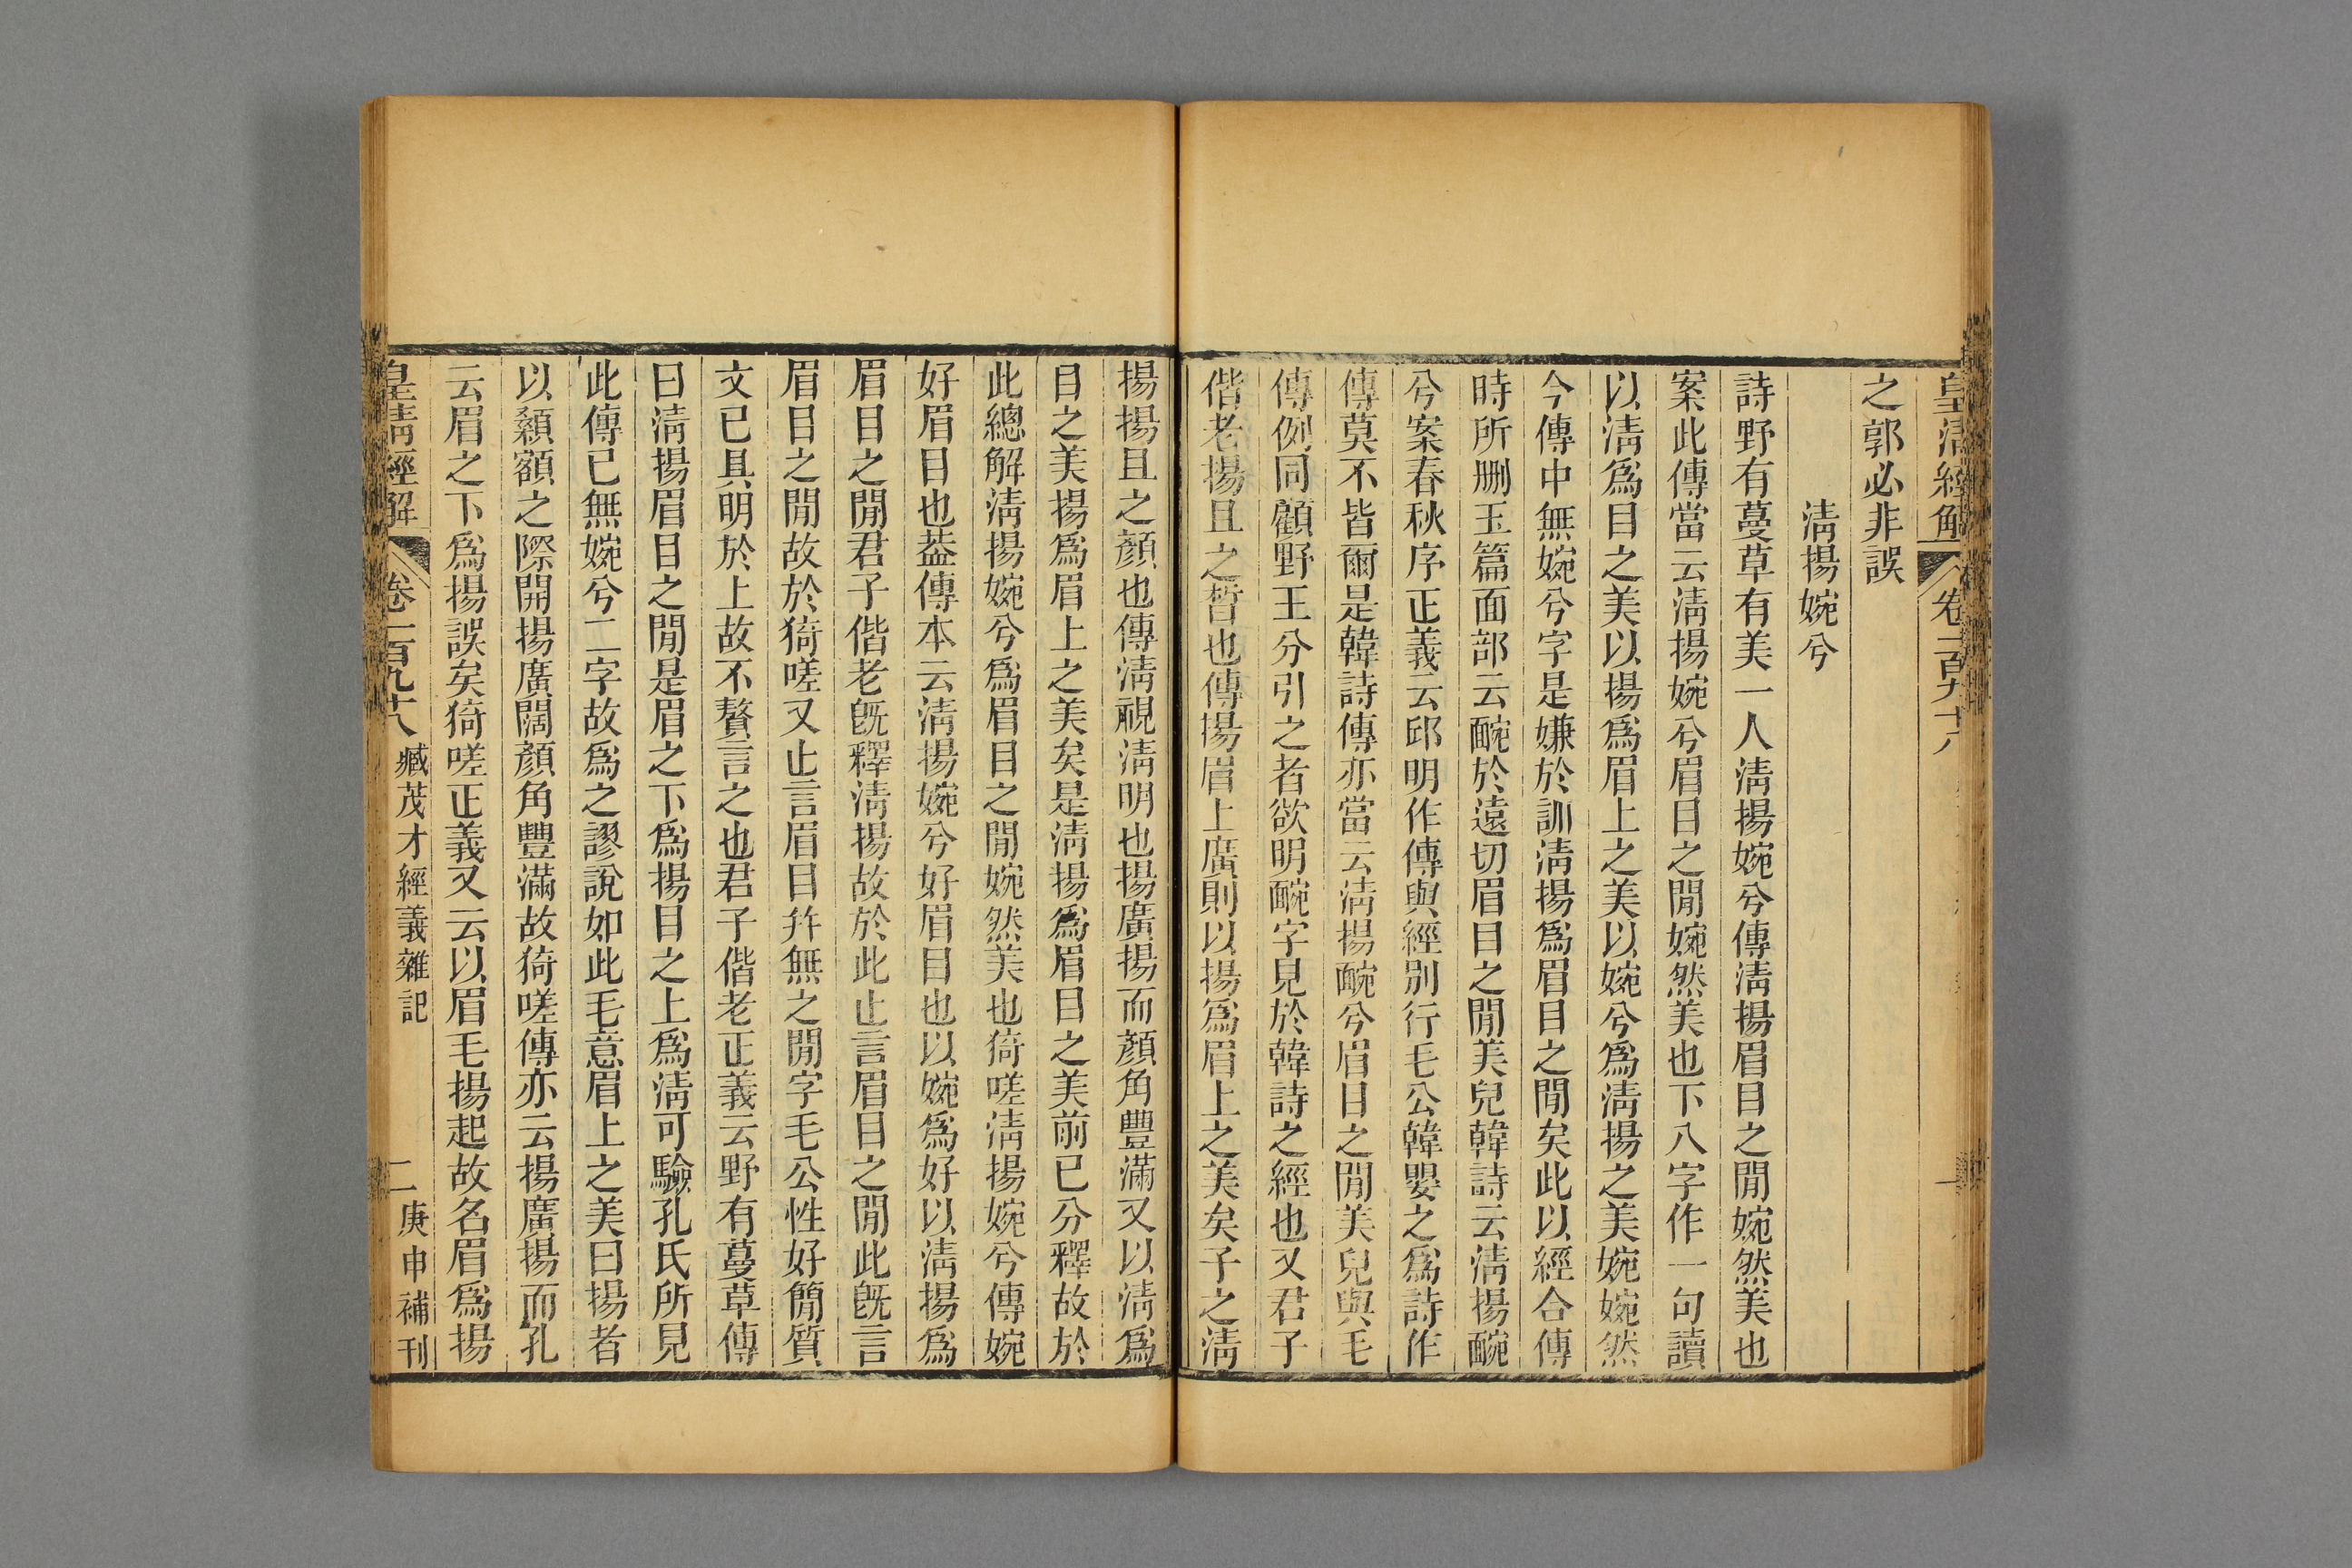 皇清經解 卷二百九十八 一
之郭必非誤
清揚婉兮
詩野有蔓草有美一人清揚婉兮傳清揚眉目之閒婉然美也
案此傳當云清揚婉兮眉目之閒婉然美也下八字作一句讀
以清爲目之美以揚爲眉上之美以婉兮爲清揚之美婉婉然
今傳中無婉兮字是嫌於訓清揚爲眉目之閒矣此以經合傳
時所刪玉篇面部云䩊於遠切眉目之閒美皃韓詩云清揚䩊
兮案春秋序正義云邱明作傳與經別行毛公韓嬰之爲詩作
傳莫不皆爾是韓詩傳亦當云清揚䩊兮眉目之閒美皃與毛
傳例同顧野王分引之者欲明䩊字見於韓詩之經也又君子
偕老揚且之晳也傳揚眉上廣則以揚爲眉上之美矣子之清
揚揚且之顏也傳清視清明也揚廣揚而顏角豐滿又以清爲
目之美揚爲眉上之美矣是清揚爲眉目之美前已分釋故於
此總解清揚婉兮爲眉目之閒婉然美也猗嗟清揚婉兮傳婉
好眉目也葢傳本云清揚婉兮好眉目也以婉爲好以清揚爲
眉目之閒君子偕老旣釋清揚故於此止言眉目之閒此旣言
眉目之閒故於猗嗟又止言眉目幷無之閒字毛公性好簡質
文已具明於上故不贅言之也君子偕老正義云野有蔓草傳
曰清揚眉目之閒是眉之下爲揚目之上爲清可驗孔氏所見
此傳已無婉兮二字故爲之謬說如此毛意眉上之美曰揚者
以顙額之際開揚廣闊顏角豐滿故猗嗟傳亦云揚廣揚而孔
云眉之下爲揚誤矣猗嗟正義又云以眉毛揚起故名眉爲揚
皇清經解 卷二百九十八 臧茂才經義雜記 二 庚申補刊